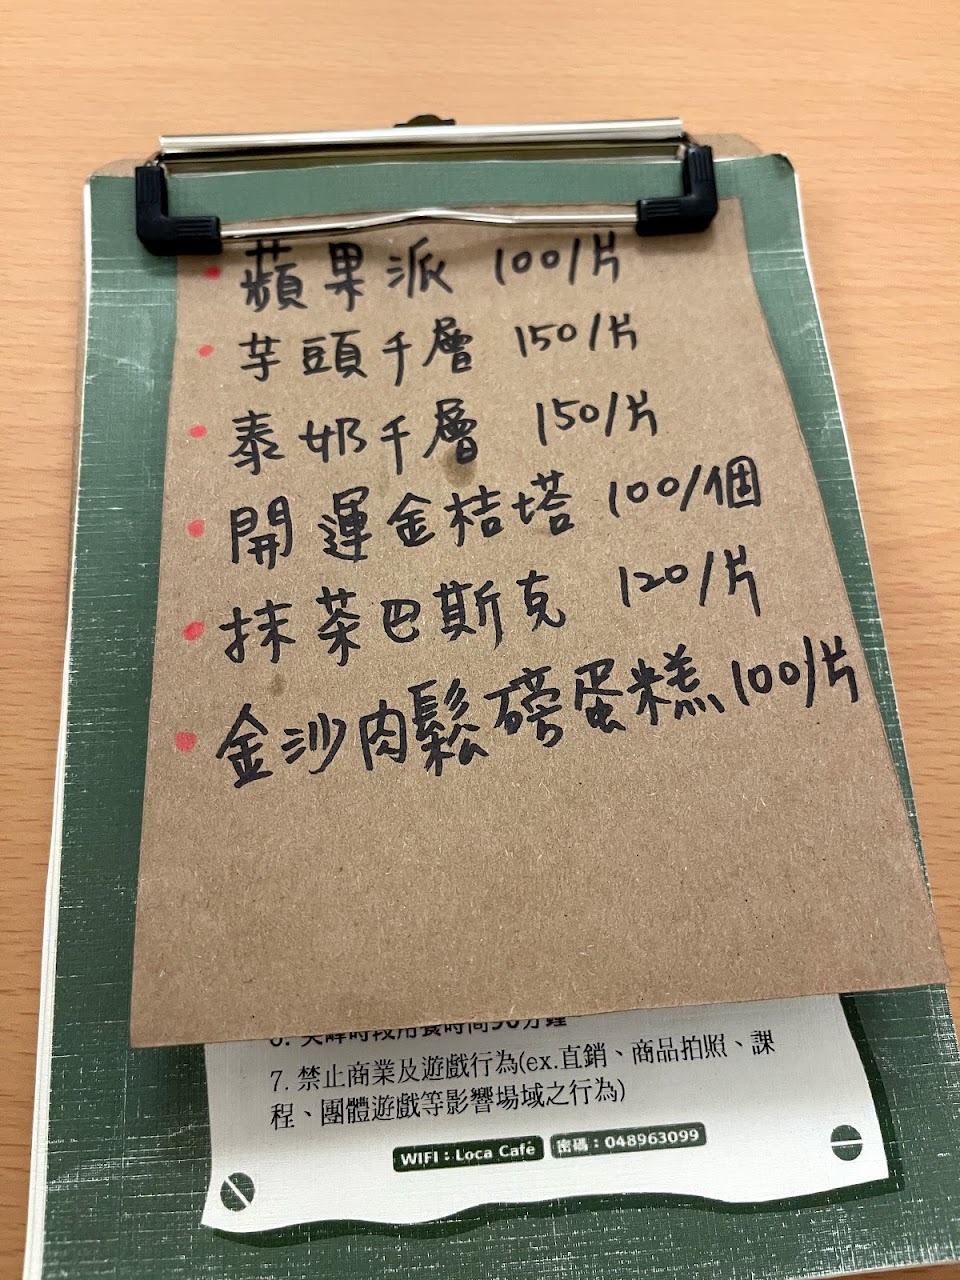 蘋果派 100/片
芋頭千層 150/片
泰奶千層 150/片
開運金桔塔 100/個
抹茶巴斯克 120/片
金沙肉鬆磅蛋糕 100/片
6. 尖峰時段用餐時間90分鐘
7. 禁止商業及遊戲行為(ex.直銷、商品拍照、課
程、團體遊戲等影響場域之行為)
WIFI：Loca Cafe 密碼：048963099